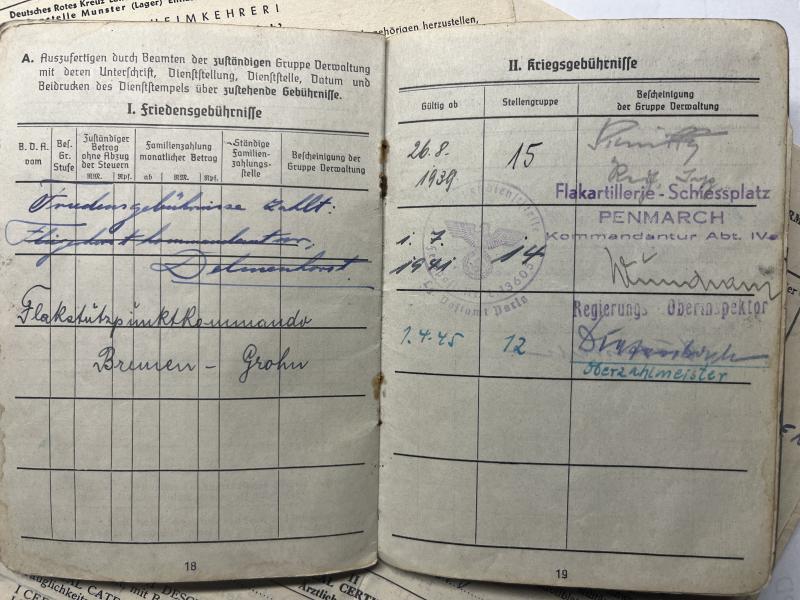 Deutsches Rotes Kreuz
stelle Munster (Lager)
HEIMKEHRER!
gehörigen herzustellen,
A. Auszufertigen durch Beamten der zuständigen Gruppe Verwaltung
mit deren Unterschrift, Dienststellung, Dienststelle, Datum und
Beidrucken des Dienststempels über zustehende Gebührnisse.
I. Friedensgebührnisse
B. D. A. vom
Bes. Gr. Stufe
Zuständiger Betrag ohne Abzug der Steuern
RM. Rpf.
Familienzahlung monatlicher Betrag
ab RM. Rpf.
Ständige Familien-zahlungs-stelle
Bescheinigung der Gruppe Verwaltung
Friedensgebührnisse zahlt:
Fliegerhorstkommandantur,
Delmenhorst.
Flakstützpunktkommando
Bremen - Grohn
18
II. Kriegsgebührnisse
Gültig ab
Stellengruppe
Bescheinigung
der Gruppe Verwaltung
26.8.
1939
15
Flakartillerie-Schiessplatz
PENMARCH
Kommandantur Abt. IVa
1. 7.
1941
14
Postamt Paris
Regierungs-Oberinspektor
1.4.45
12
Oberzahlmeister
19